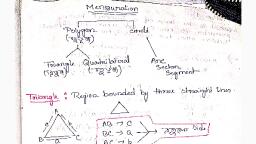 Mensuration
Polygon circle
Triangle Quadrilateral Arc
Sector
Segment
Triangle : Region bounded by three straight lines.
A
c b
B a C
AB → c
BC → a
AC → b